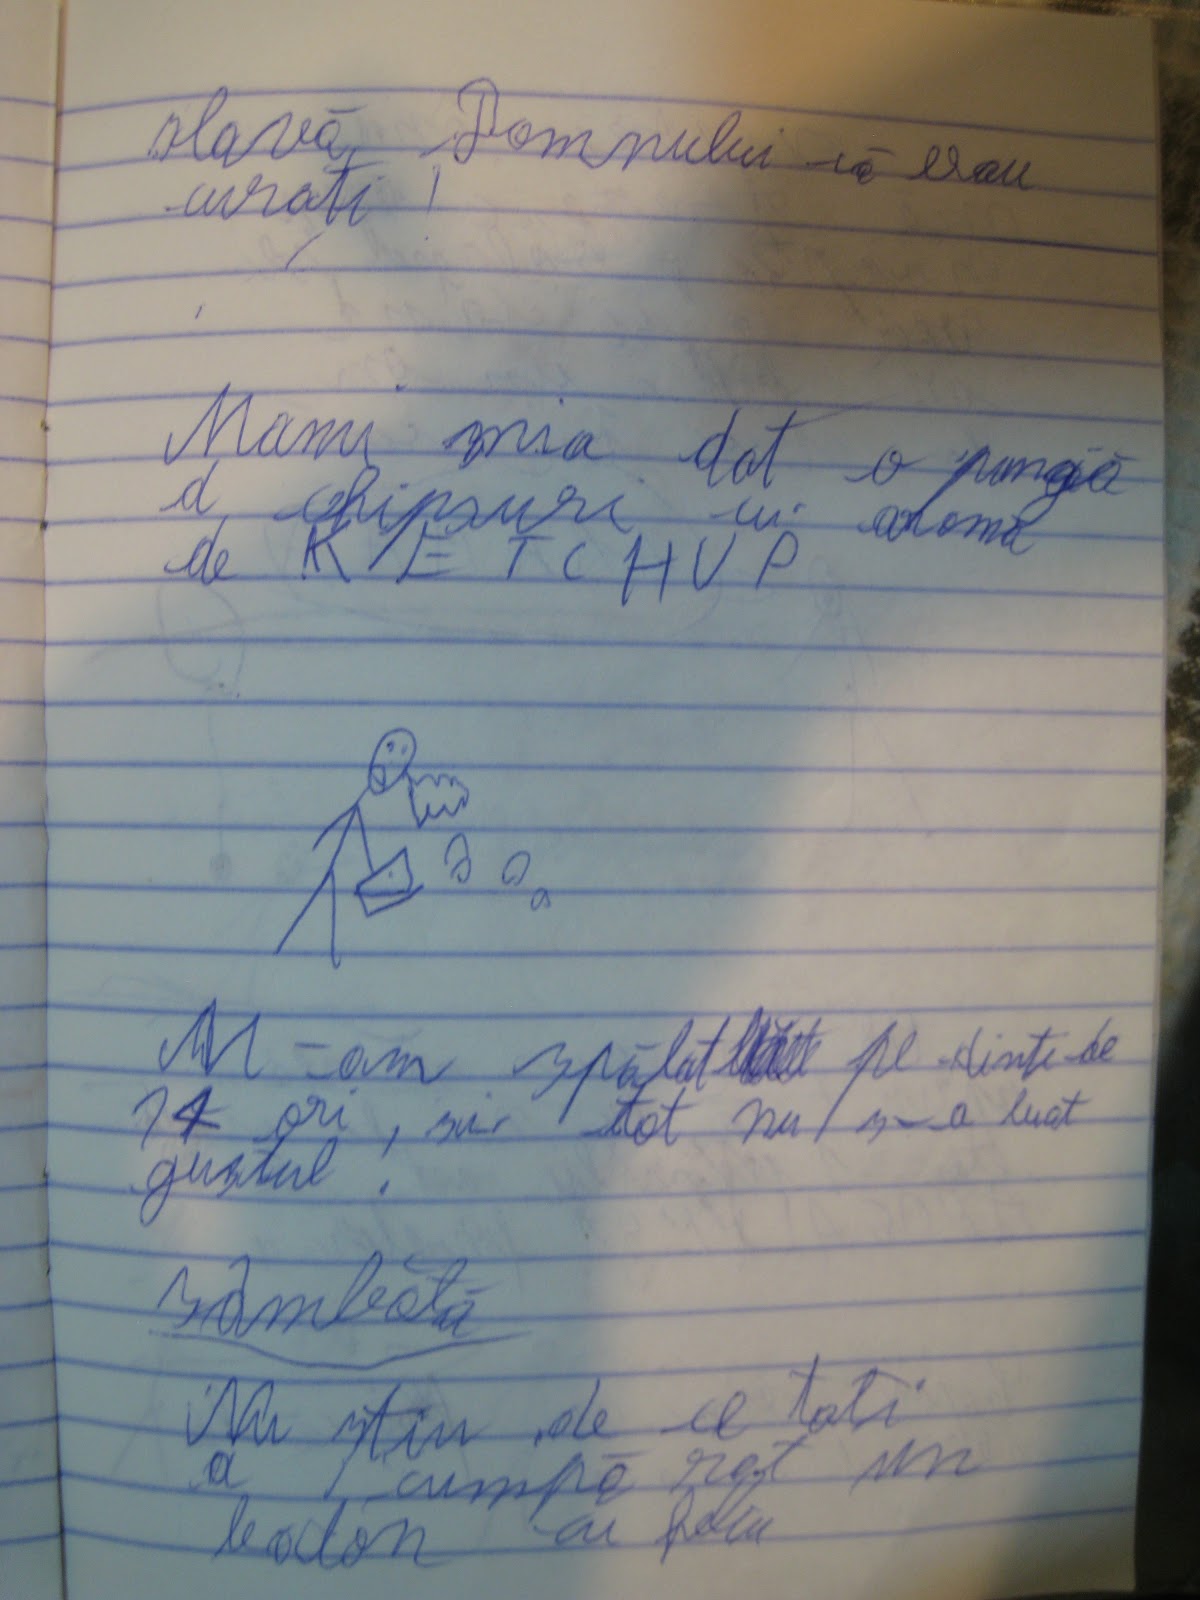 slavă Domnului că erau
curați !
Mami mia dat o pungă
d chipsuri cu aromă
de KETCHUP
M-am spălat pe dinți de
14 ori, și tot nu s-a luat
gustul !
sâmbătă
Nu știu de ce tati
a cumpărat un
cu